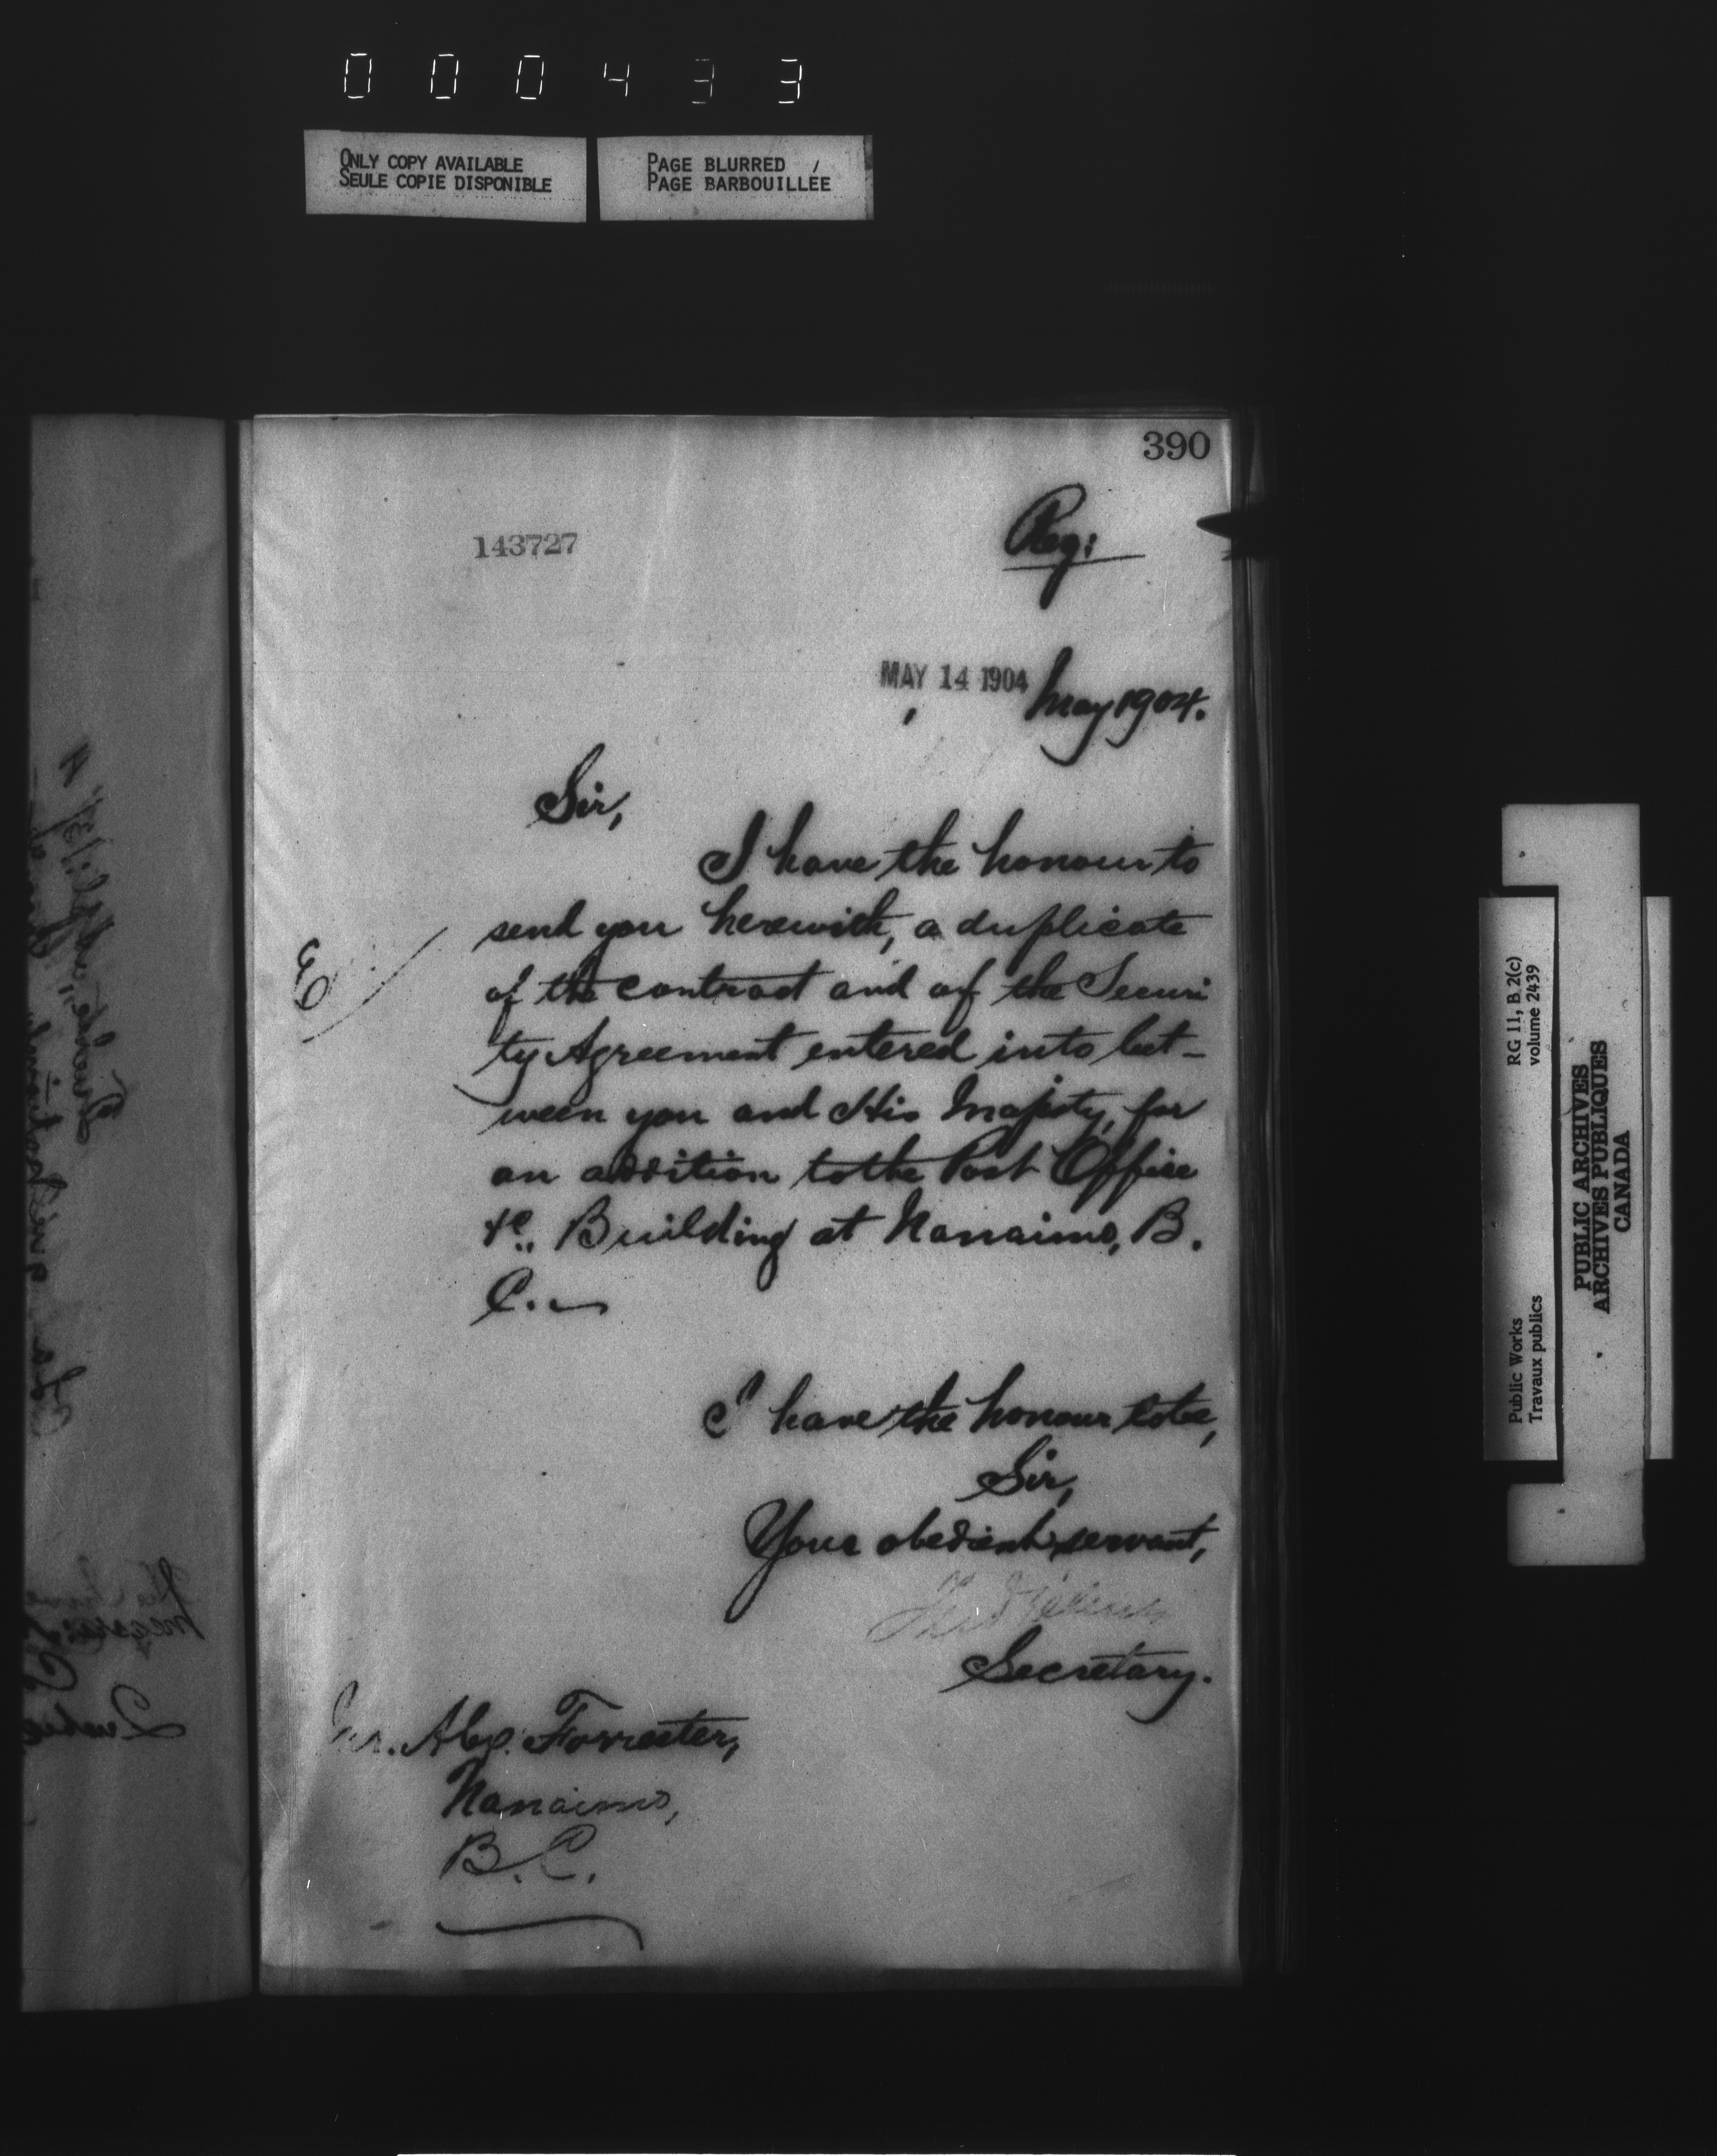 000433
ONLY COPY AVAILABLE
SEULE COPIE DISPONIBLE
PAGE BLURRED
PAGE BARBOUILLÉE
390
143727
Reg:
MAY 14 1904 May 1904.
Sir,
I have the honour to
send you herewith, a duplicate
of the contract and of the Securi
ty Agreement entered into bet-
ween you and His Majesty, for
an addition to the Post Office
&c., Building at Nanaimo, B.
C.
E
I have the honour to be,
Sir,
Your obedient servant,
Secretary.
Mr. Alex. Forrester,
Nanaimo,
B.C.
Public Works
Travaux publics
RG 11, B 2(c)
volume 2439
PUBLIC ARCHIVES
ARCHIVES PUBLIQUES
CANADA